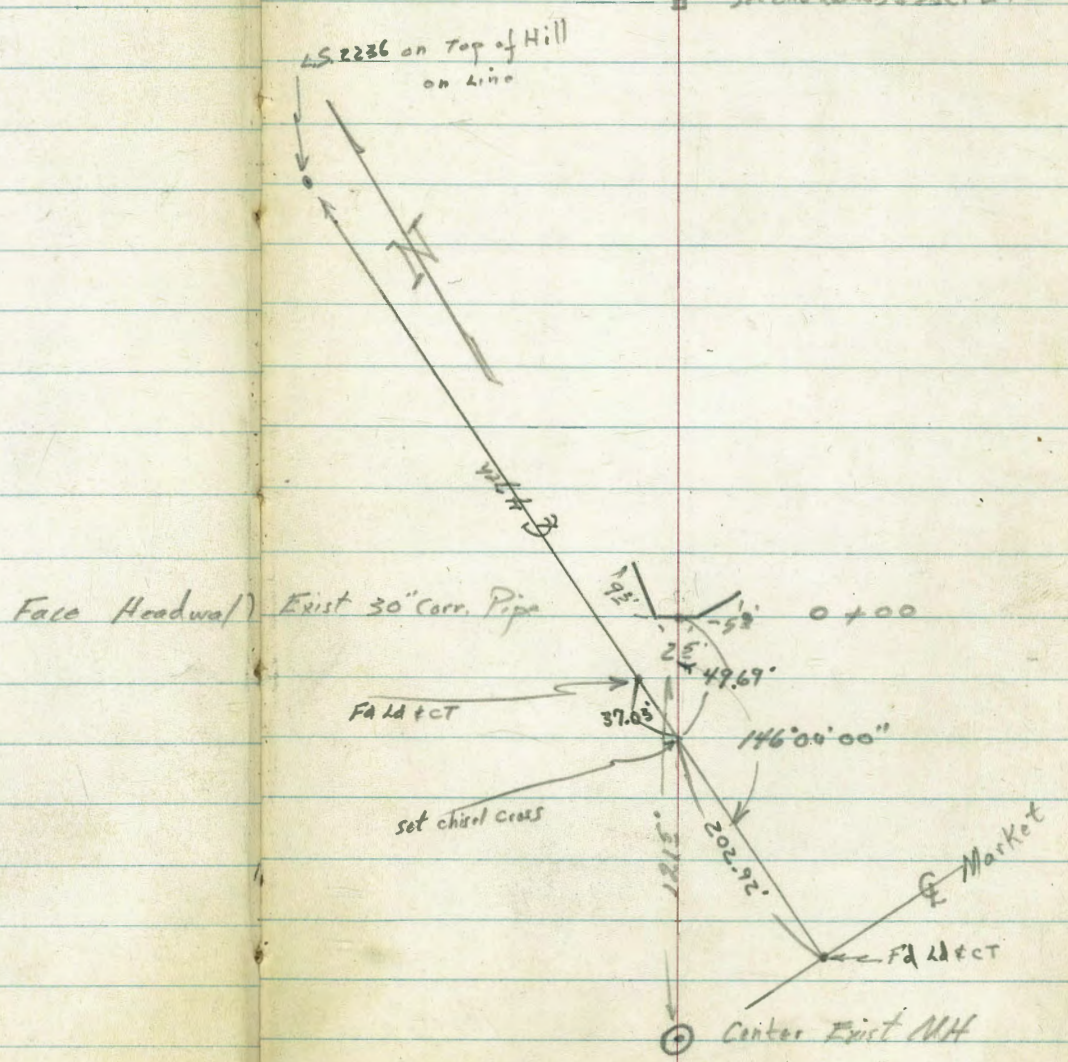 L.S. 2236 on Top of Hill
on Line
N
42th
Face Headwall Exist 30" Corr. Pipe
0 + 00
49.69'
Fd Ld & CT
37.03'
146°04'00"
set chisel Cross
202.92'
℄ Market
F'd Ld & CT
Center Exist MH